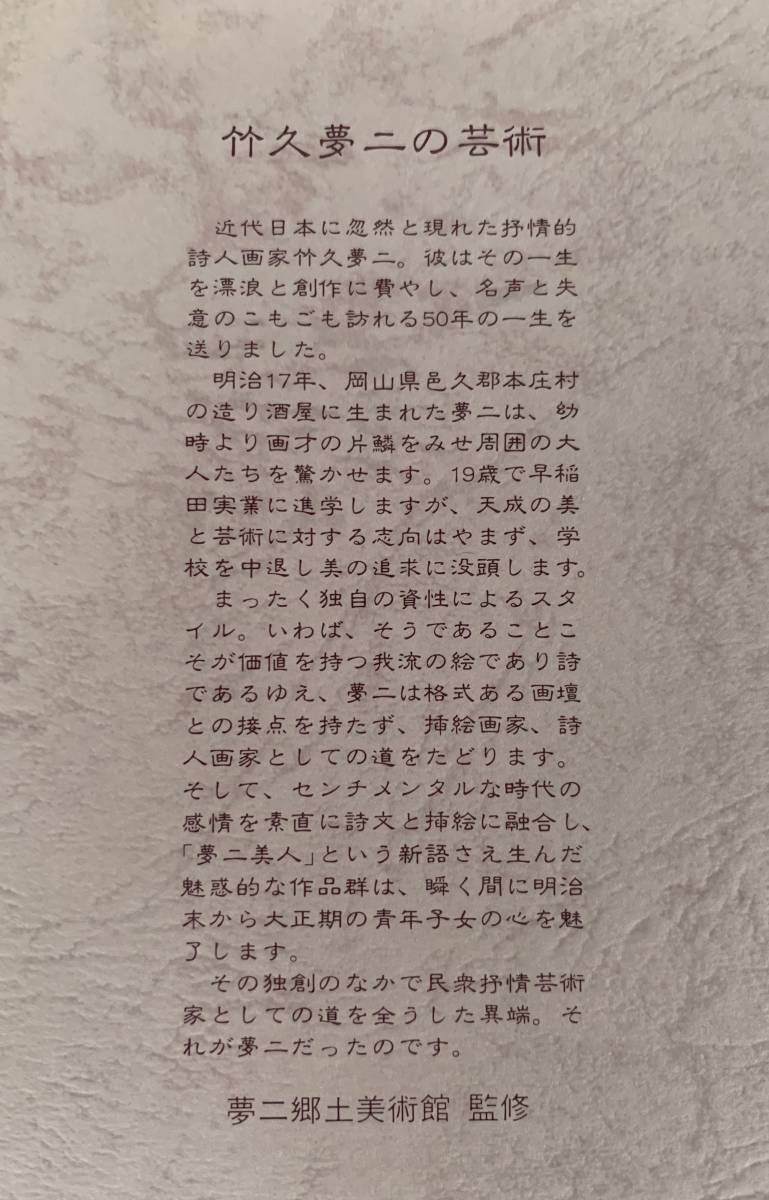 竹久夢二の芸術
近代日本に忽然と現れた抒情的
詩人画家竹久夢二。彼はその一生
を漂浪と創作に費やし、名声と失
意のこもごも訪れる50年の一生を
送りました。
明治17年、岡山県邑久郡本庄村
の造り酒屋に生まれた夢二は、幼
時より画才の片鱗をみせ周囲の大
人たちを驚かせます。19歳で早稲
田実業に進学しますが、天成の美
と芸術に対する志向はやまず、学
校を中退し美の追求に没頭します。
まったく独自の資性によるスタ
イル。いわば、そうであることこ
そが価値を持つ我流の絵であり詩
であるゆえ、夢二は格式ある画壇
との接点を持たず、挿絵画家、詩
人画家としての道をたどります。
そして、センチメンタルな時代の
感情を素直に詩文と挿絵に融合し、
「夢二美人」という新語さえ生んだ
魅惑的な作品群は、瞬く間に明治
末から大正期の青年子女の心を魅
了します。
その独創のなかで民衆抒情芸術
家としての道を全うした異端。そ
れが夢二だったのです。
夢二郷土美術館 監修